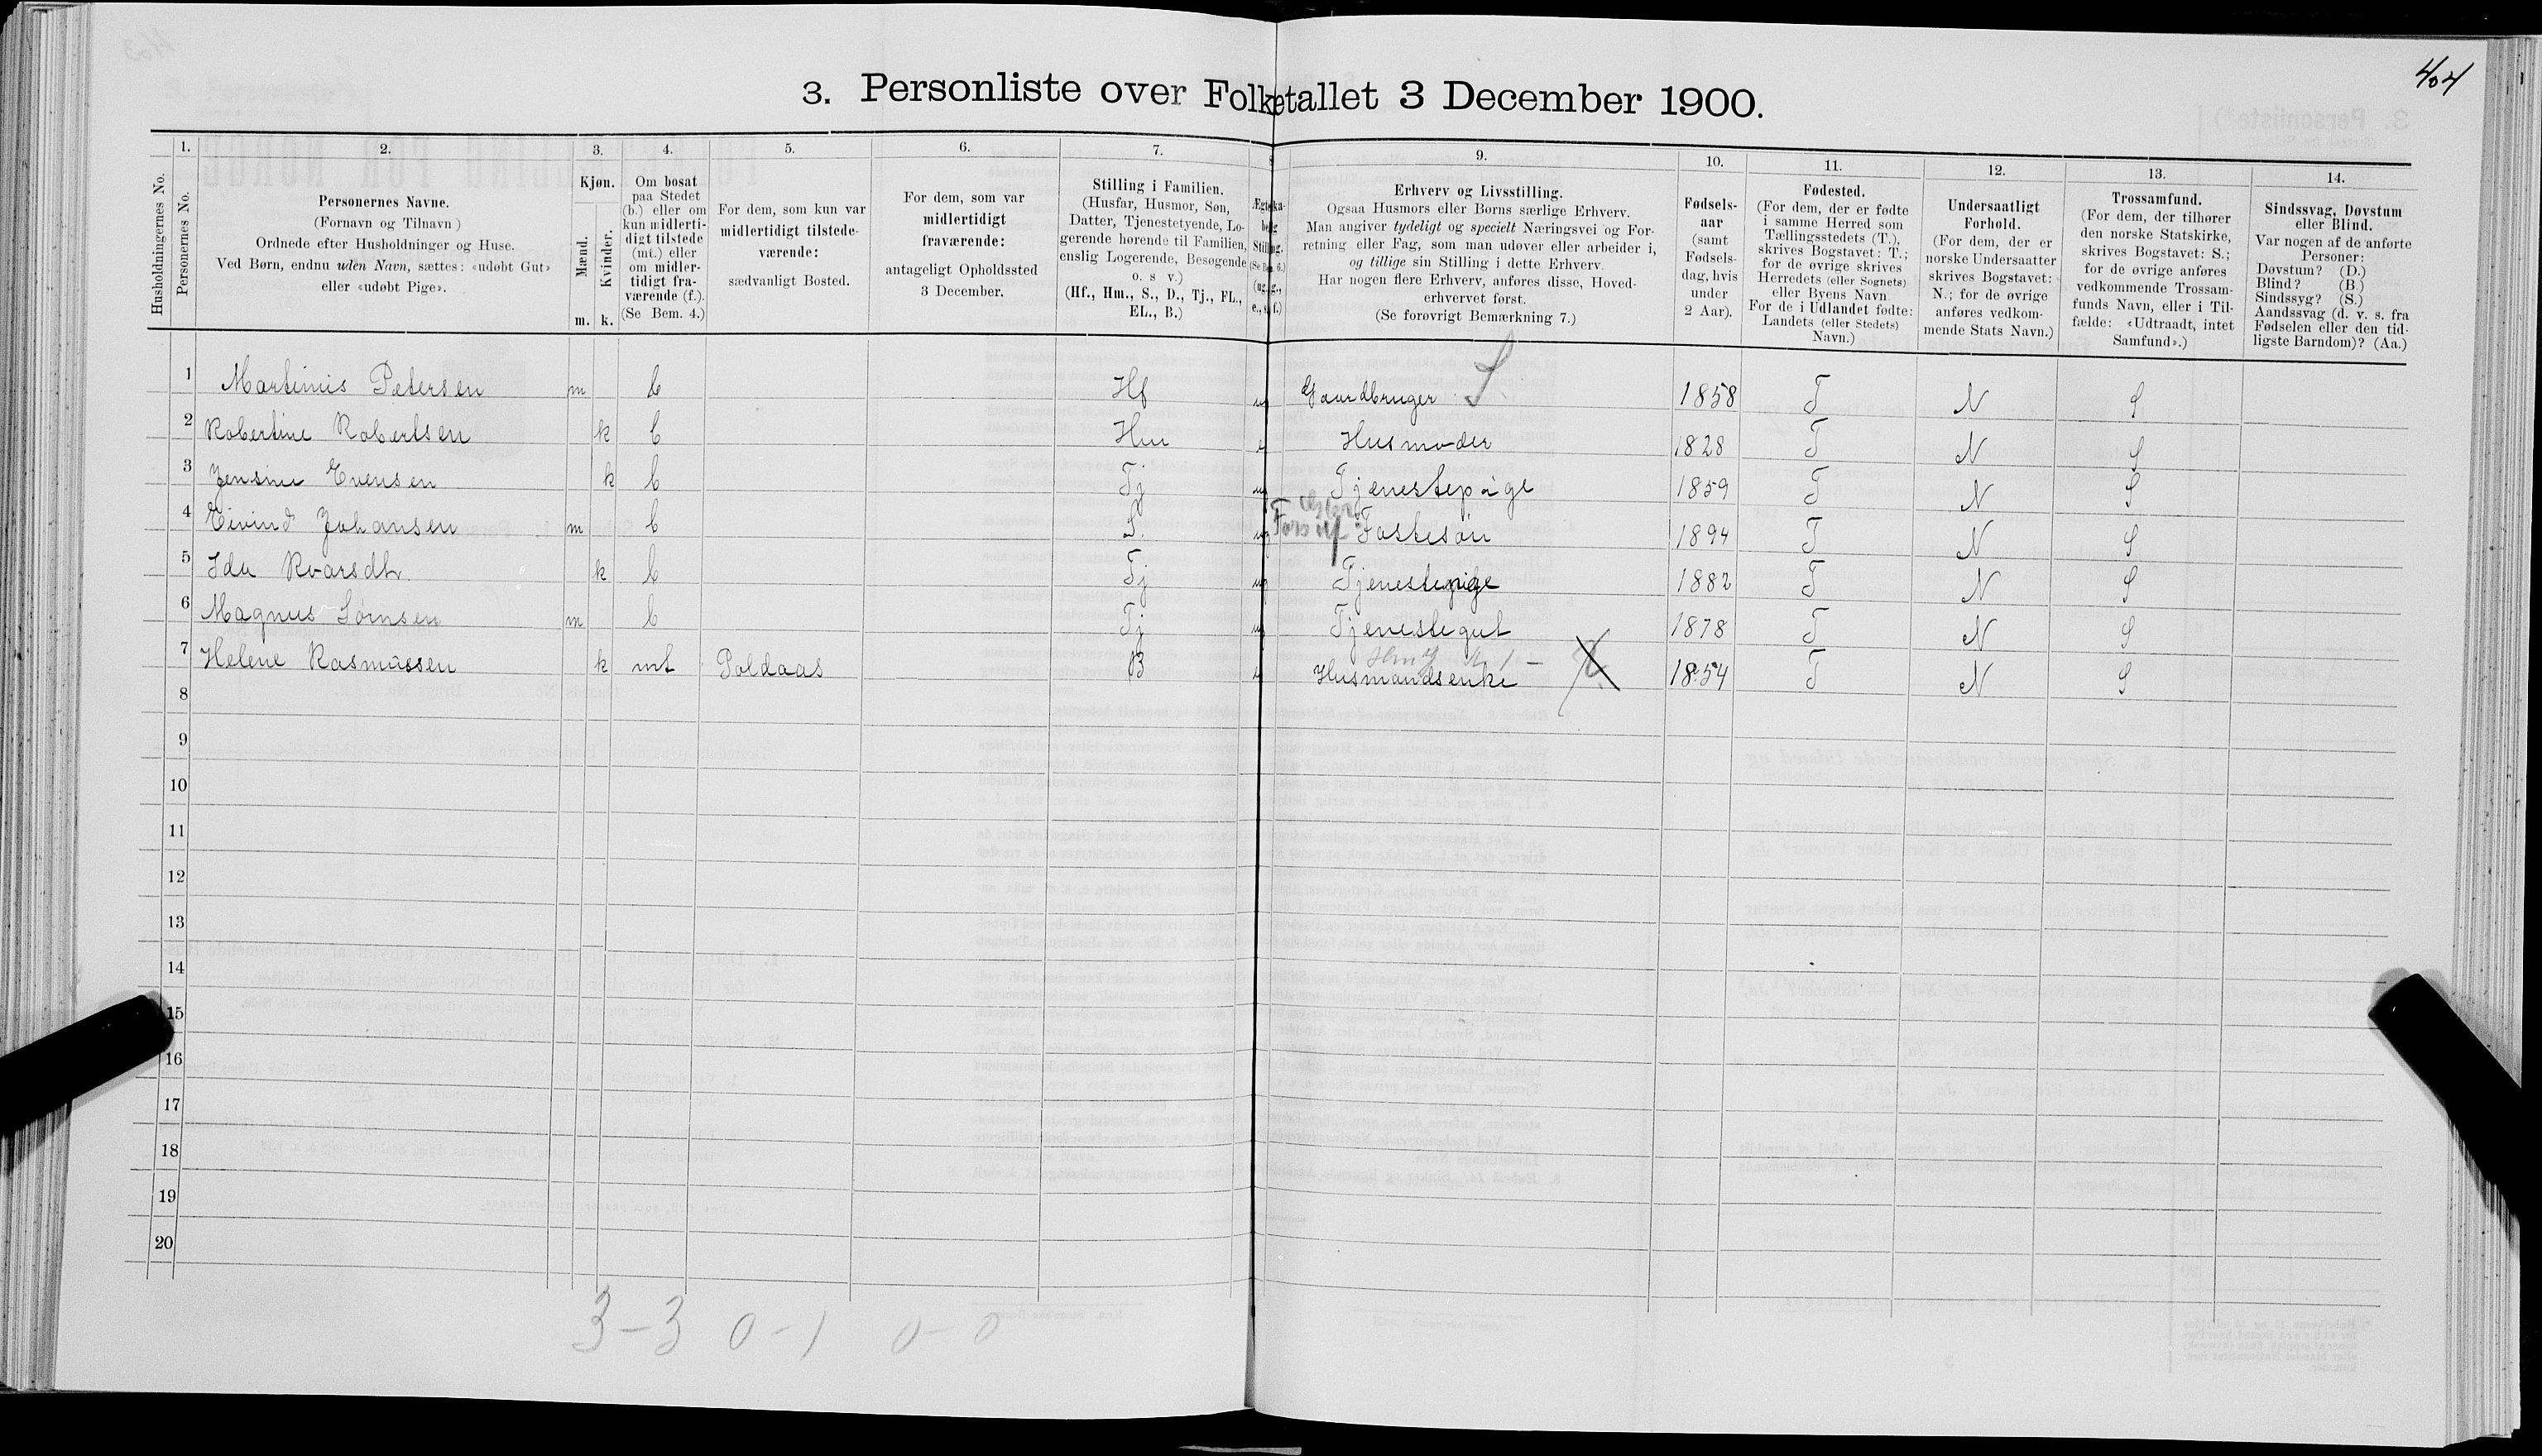 404
3. Personliste over Folketallet 3 December 1900.
1. 2. 3. 4. 5. 6. 7. 9. 10. 11. 12. 13. 14.
Husholdningernes No.
Personernes No.
Personernes Navne.
(Fornavn og Tilnavn)
Ordnede efter Husholdninger og Huse.
Ved Børn, endnu uden Navn, sættes: «udøbt Gut»
eller «udøbt Pige».
Kjøn.
Mænd.
Kvinder.
m. k.
Om bosat
paa Stedet
(b.) eller om
kun midlerti-
digt tilstede
(mt.) eller
om midler-
tidigt fra-
værende (f.).
(Se Bem. 4.)
For dem, som kun var
midlertidigt tilstede-
værende:
sædvanligt Bosted.
For dem, som var
midlertidigt
fraværende:
antageligt Opholdssted
3 December.
Stilling i Familien.
(Husfar, Husmor, Søn,
Datter, Tjenestetyende, Lo-
gerende hørende til Familien,
enslig Logerende, Besøgende
o. s v.)
(Hf., Hm., S., D., Tj., FL.,
EL., B.)
Erhverv og Livsstilling.
Ogsaa Husmors eller Børns særlige Erhverv.
Man angiver tydeligt og specielt Næringsvei og For-
retning eller Fag, som man udøver eller arbeider i,
og tillige sin Stilling i dette Erhverv.
Har nogen flere Erhverv, anføres disse, Hoved-
erhvervet først.
(Se forøvrigt Bemærkning 7.)
Fødsels-
aar
(samt
Fødsels-
dag, hvis
under
2 Aar).
Fødested.
(For dem, der er fødte
i samme Herred som
Tællingsstedets (T.),
skrives Bogstavet: T.;
for de øvrige skrives
Herredets (eller Sognets)
eller Byens Navn
For de i Udlandet fødte:
Landets (eller Stedets)
Navn.)
Undersaatligt
Forhold.
(For dem, der er
norske Undersaatter
skrives Bogstavet:
N.; for de øvrige
anføres vedkom-
mende Stats Navn.)
Trossamfund.
(For dem, der tilhører
den norske Statskirke,
skrives Bogstavet: S.;
for de øvrige anføres
vedkommende Trossam-
funds Navn, eller i Til-
fælde: «Udtraadt, intet
Samfund».)
Sindssvag, Døvstum
eller Blind.
Var nogen af de anførte
Personer:
Døvstum? (D.)
Blind? (B.)
Sindssyg? (S.)
Aandssvag (d. v. s. fra
Fødselen eller den tid-
ligste Barndom)? (Aa.)
1 Martinus Petersen m b Hf ug Gaardbruger S 1858 T N S
2 Robertine Robertsen k b Hm e Husmoder 1828 T N S
3 Jensine Evensen k b Tj ug Tjenestepige 1859 T N S
4 Eivind Johansen m b S. ug Fostesøn 1894 T N S
5 Ida Roarsdtr. k b Tj ug Tjenestepige 1882 T N S
6 Magnus Sørnsen m b Tj ug Tjenestegut 1878 T N S
7 Helene Rasmussen k mt Poldaas B e Husmandsenke 1854 T N S
8
9
10
11
12
13
14
15
16
17
18
19
20
3 - 3 0 - 1 0 - 0